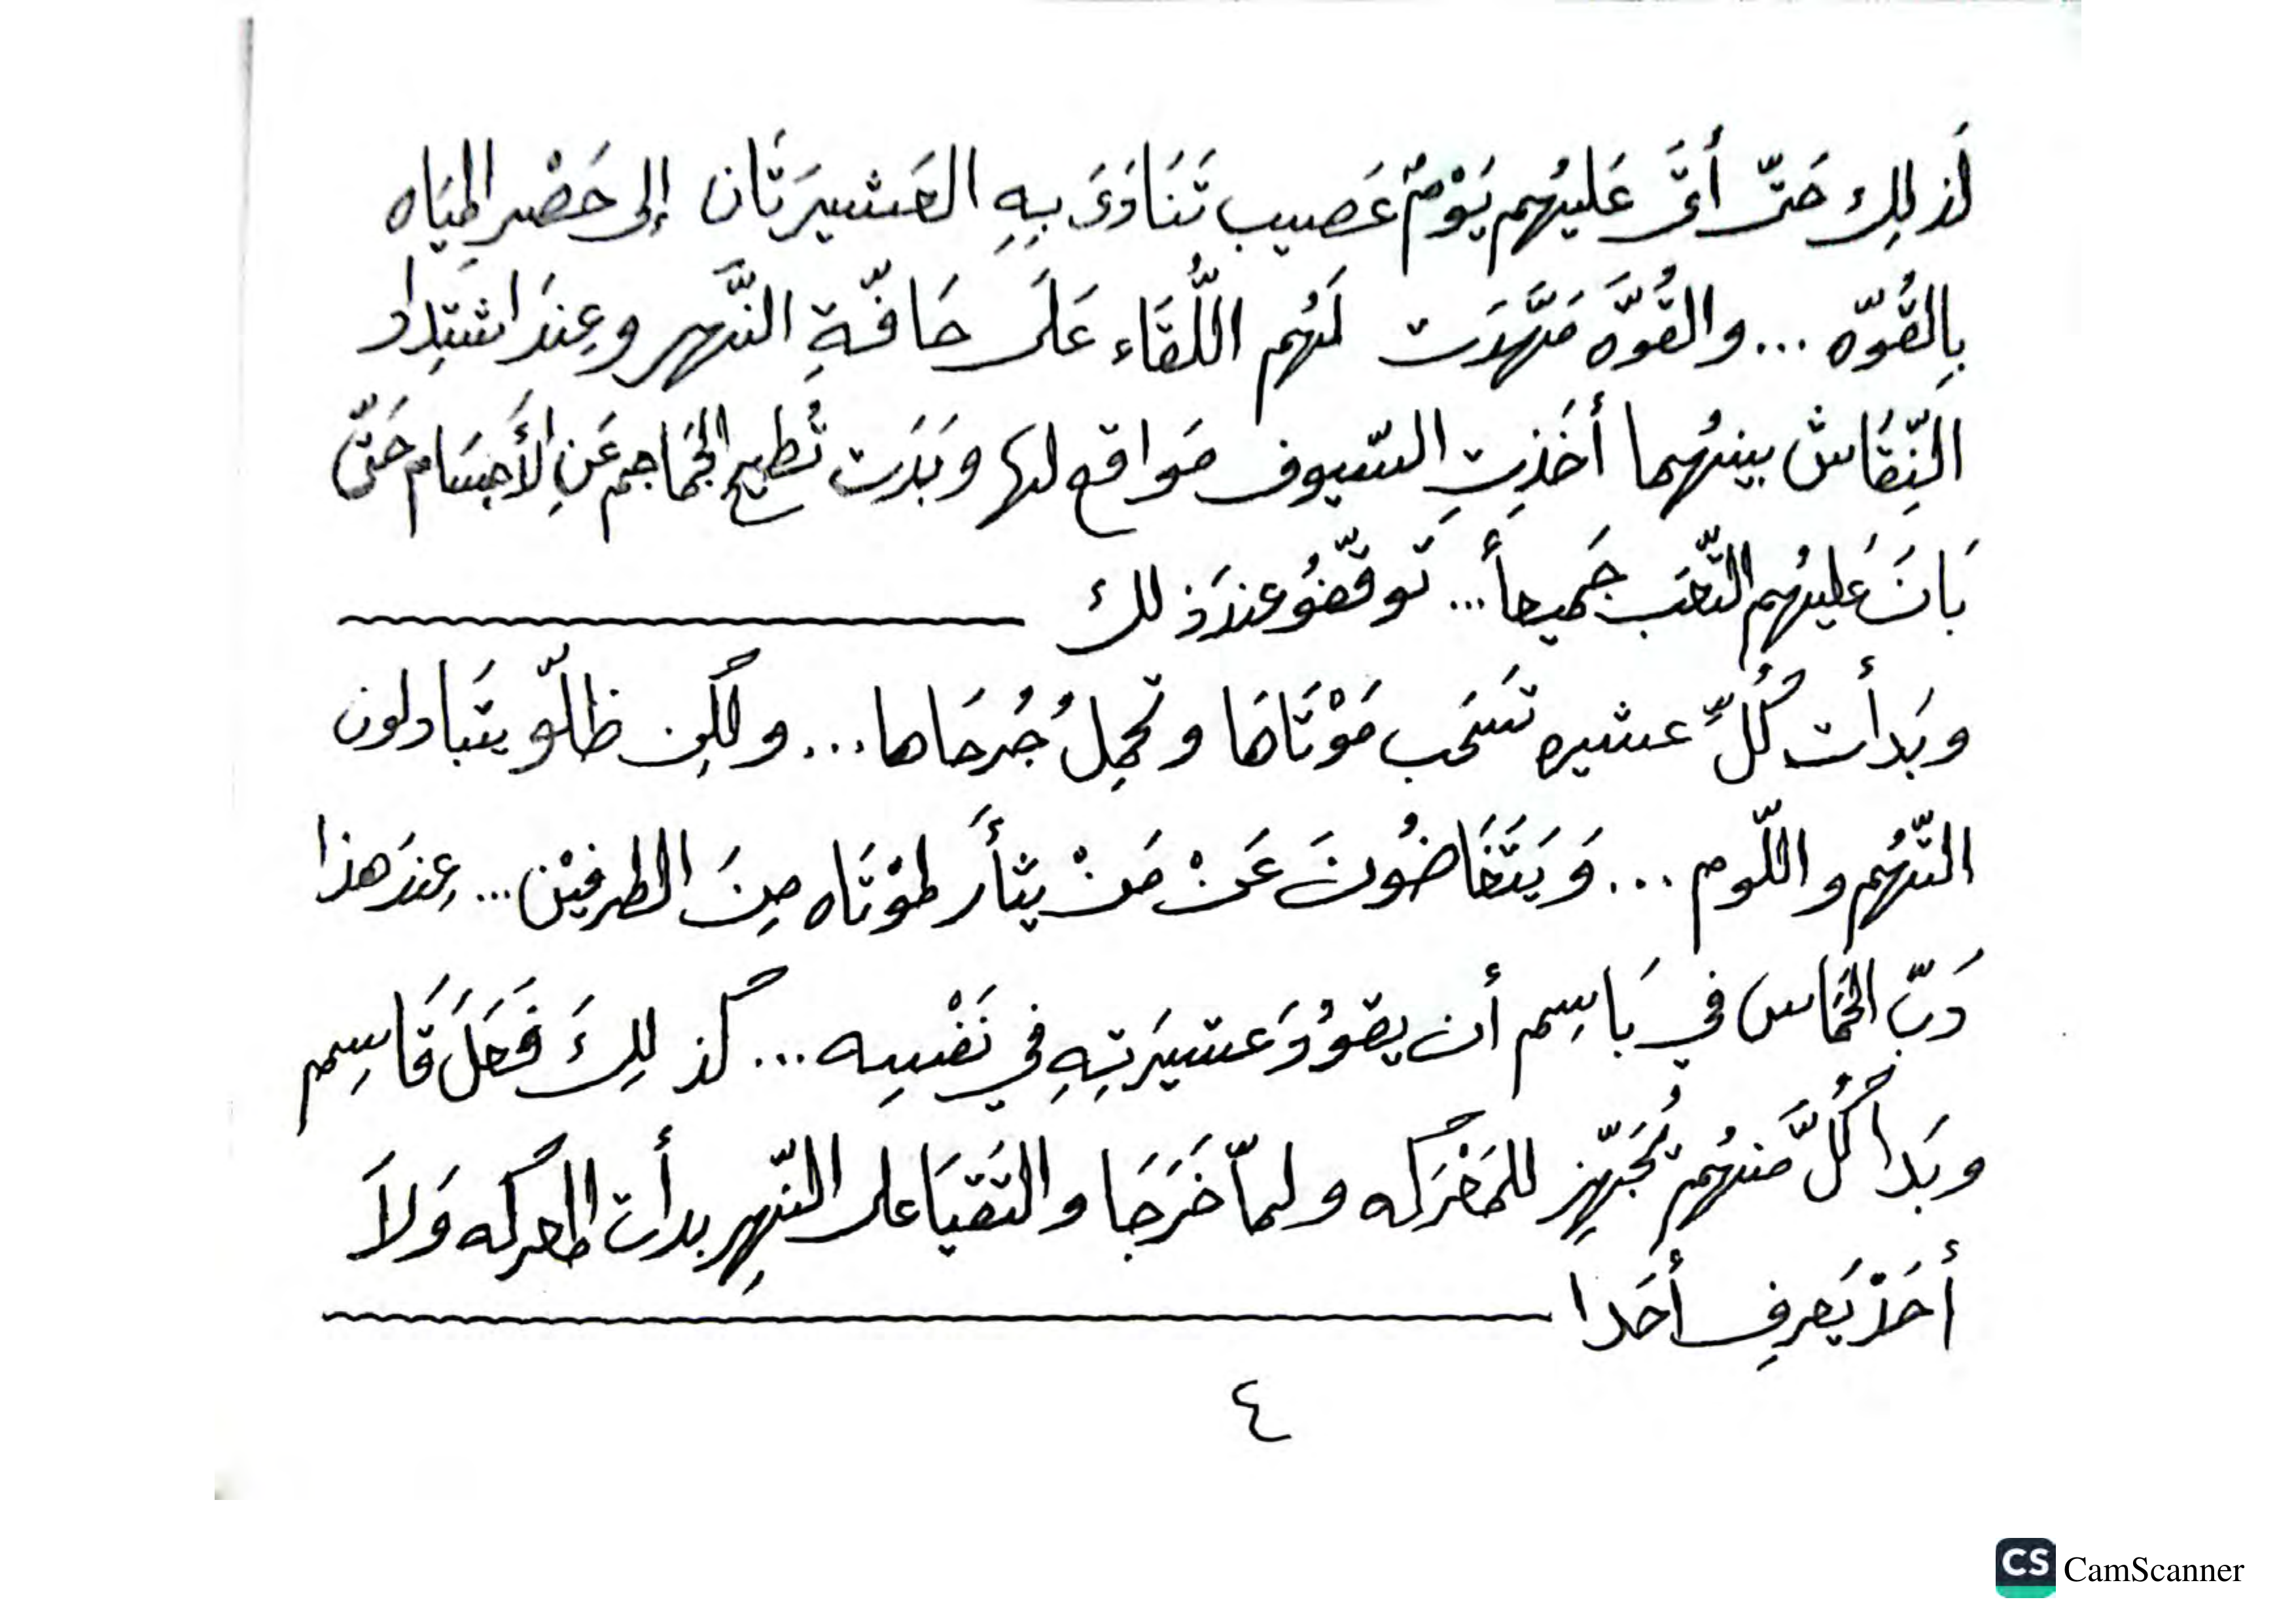 لَذلِك حَتّى أتَى عَليهُم يَوْمٌ عَصيب تَنَادَى بِهِ العَشيرَتَان إلى حَصْر المِيَاه
بِالقُوّه ... والقُوَّه مَهَّدَت لَهُم اللّقَاء عَلَى حَافّةِ النَّهر وعِندَ اشتِدِاد
النِّقَاش بينهُما أخَذِتِ السّيوف مَوَاقع لها وبَدَت تُطيح الجَمَاجم عَنِ الأَجسَام حَتَّى
بَانَ عَليهُم التّعَب جَميعاً ... تَوقّفُو عندَذلك
وبَدأت كُلّ عشيره تَسحَب مَوْتَاهَا وتَحمِلُ جُرحَاها ... ولكِن ظلّو يتَبادلون
التّهُم واللّوم ... وَيَتَغَاضُونَ عَنْ مَنْ يثأَر لمَوْتَاه مِنَ الطرفيْن ... عِندَ هذا
دَبّ الحَمَاس في بَاسِم أن يقوُدَ عَشيَرتِهِ في نَفْسِه ... كذلِكَ فَعَلَ قَاسِم
وبَدا كُلَّ منهُم يُجَهّز للمَعْرَكه ولمّا خَرَجَا والتَقيَا على النّهِر بدأت المعركه وَلاَ
أحَدْ يَعرِف أحَدا
٤
CS CamScanner